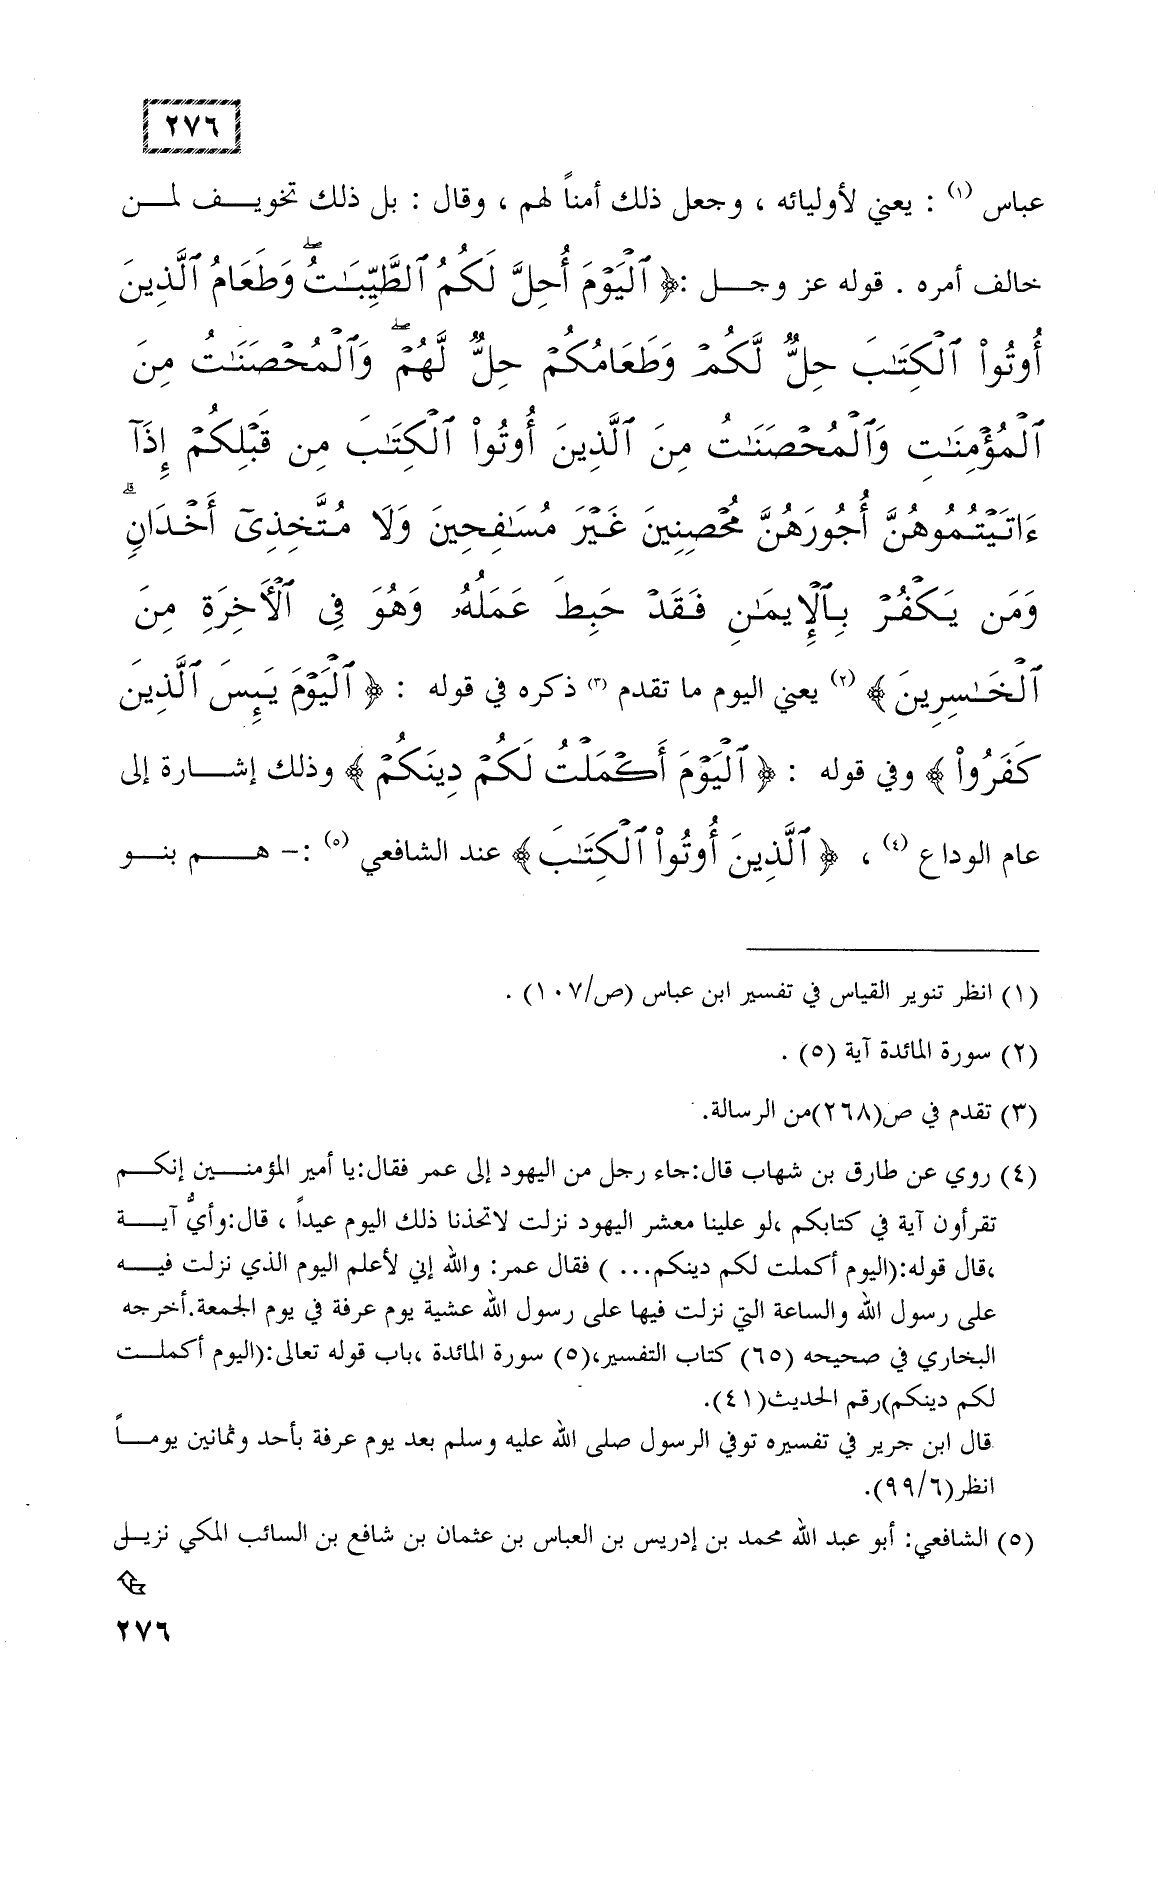 ٢٧٦
عباس (١) : يعني لأوليائه ، وجعل ذلك أمناً لهم ، وقال : بل ذلك تخويف لمن
خالف أمره . قوله عز وجل :﴿ ٱلْيَوْمَ أُحِلَّ لَكُمُ ٱلطَّيِّبَـٰتُ ۖ وَطَعَامُ ٱلَّذِينَ
أُوتُوا۟ ٱلْكِتَـٰبَ حِلٌّ لَّكُمْ وَطَعَامُكُمْ حِلٌّ لَّهُمْ ۖ وَٱلْمُحْصَنَـٰتُ مِنَ
ٱلْمُؤْمِنَـٰتِ وَٱلْمُحْصَنَـٰتُ مِنَ ٱلَّذِينَ أُوتُوا۟ ٱلْكِتَـٰبَ مِن قَبْلِكُمْ إِذَآ
ءَاتَيْتُمُوهُنَّ أُجُورَهُنَّ مُحْصِنِينَ غَيْرَ مُسَـٰفِحِينَ وَلَا مُتَّخِذِىٓ أَخْدَانٍ ۗ
وَمَن يَكْفُرْ بِٱلْإِيمَـٰنِ فَقَدْ حَبِطَ عَمَلُهُۥ وَهُوَ فِى ٱلْأَخِرَةِ مِنَ
ٱلْخَـٰسِرِينَ ﴾ (٢) يعني اليوم ما تقدم (٣) ذكره في قوله : ﴿ ٱلْيَوْمَ يَئِسَ ٱلَّذِينَ
كَفَرُوا۟ ﴾ وفي قوله : ﴿ ٱلْيَوْمَ أَكْمَلْتُ لَكُمْ دِينَكُمْ ﴾ وذلك إشارة إلى
عام الوداع (٤) ، ﴿ ٱلَّذِينَ أُوتُوا۟ ٱلْكِتَـٰبَ ﴾ عند الشافعي (٥) :- هم بنو
(١) انظر تنوير القياس في تفسير ابن عباس (ص/١٠٧) .
(٢) سورة المائدة آية (٥) .
(٣) تقدم في ص(٢٦٨)من الرسالة.
(٤) روي عن طارق بن شهاب قال:جاء رجل من اليهود إلى عمر فقال:يا أمير المؤمنين إنكم
تقرأون آية في كتابكم ،لو علينا معشر اليهود نزلت لاتخذنا ذلك اليوم عيداً ، قال:وأيُّ آية
،قال قوله:(اليوم أكملت لكم دينكم... ) فقال عمر: والله إني لأعلم اليوم الذي نزلت فيه
على رسول الله والساعة التي نزلت فيها على رسول الله عشية يوم عرفة في يوم الجمعة.أخرجه
البخاري في صحيحه (٦٥) كتاب التفسير،(٥) سورة المائدة ،باب قوله تعالى:(اليوم أكملت
لكم دينكم)رقم الحديث(٤١).
قال ابن جرير في تفسيره توفي الرسول صلى الله عليه وسلم بعد يوم عرفة بأحد وثمانين يوماً
انظر(٩٩/٦).
(٥) الشافعي: أبو عبد الله محمد بن إدريس بن العباس بن عثمان بن شافع بن السائب المكي نزيل
٢٧٦